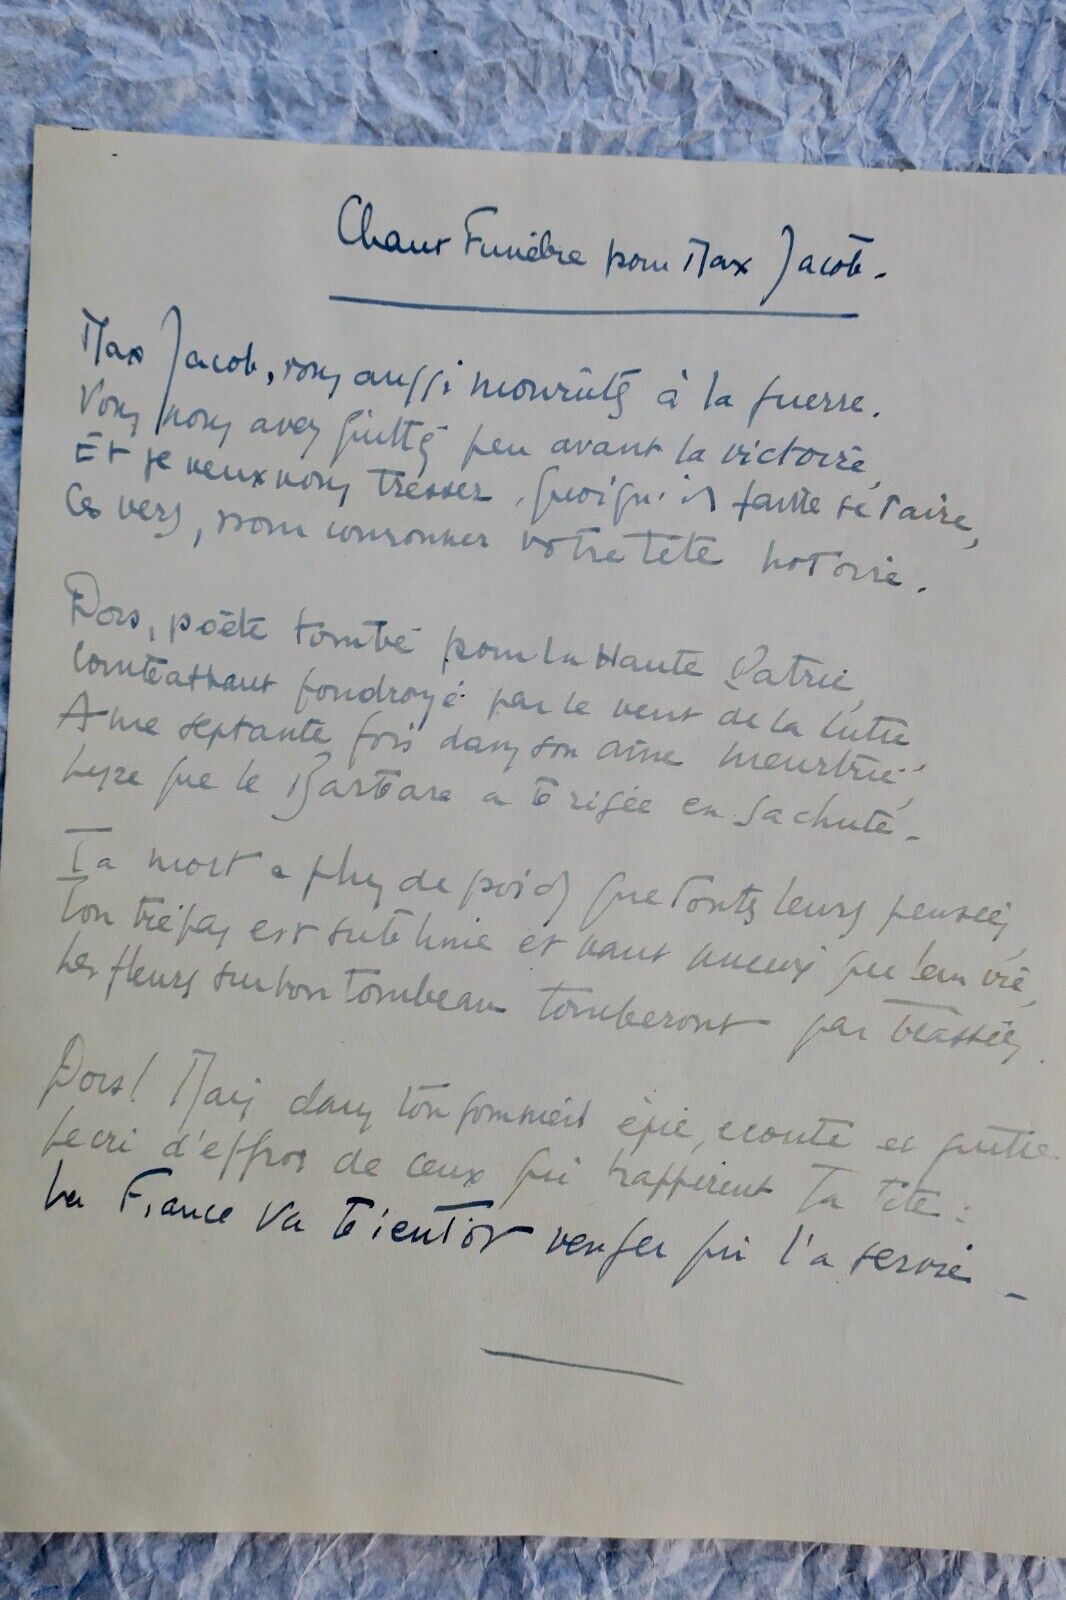 Chant Funèbre pour Max Jacob.
Max Jacob, vous aussi mourûtes à la guerre.
Vous nous avez quitté peu avant la victoire,
Et je veux vous tresser, quoiqu'il faille se taire,
Ces vers, pour couronner votre tête notoire.
Dors, poète tombé pour la Haute Patrie,
Combattant foudroyé par le vent de la lutte
Ame septante fois dans son âme meurtrie,
Lyre que le Barbare a brisée en sa chute.
Ta mort a plus de poids que toutes leurs pensées,
Ton trépas est sublime et vaut mieux que leur vie,
Les fleurs sur ton tombeau tomberont par brassées.
Dors! Mais dans ton sommeil épie, écoute et guette
Le cri d'effroi de ceux qui frappèrent ta tête:
La France va bientôt venger qui l'a servie.